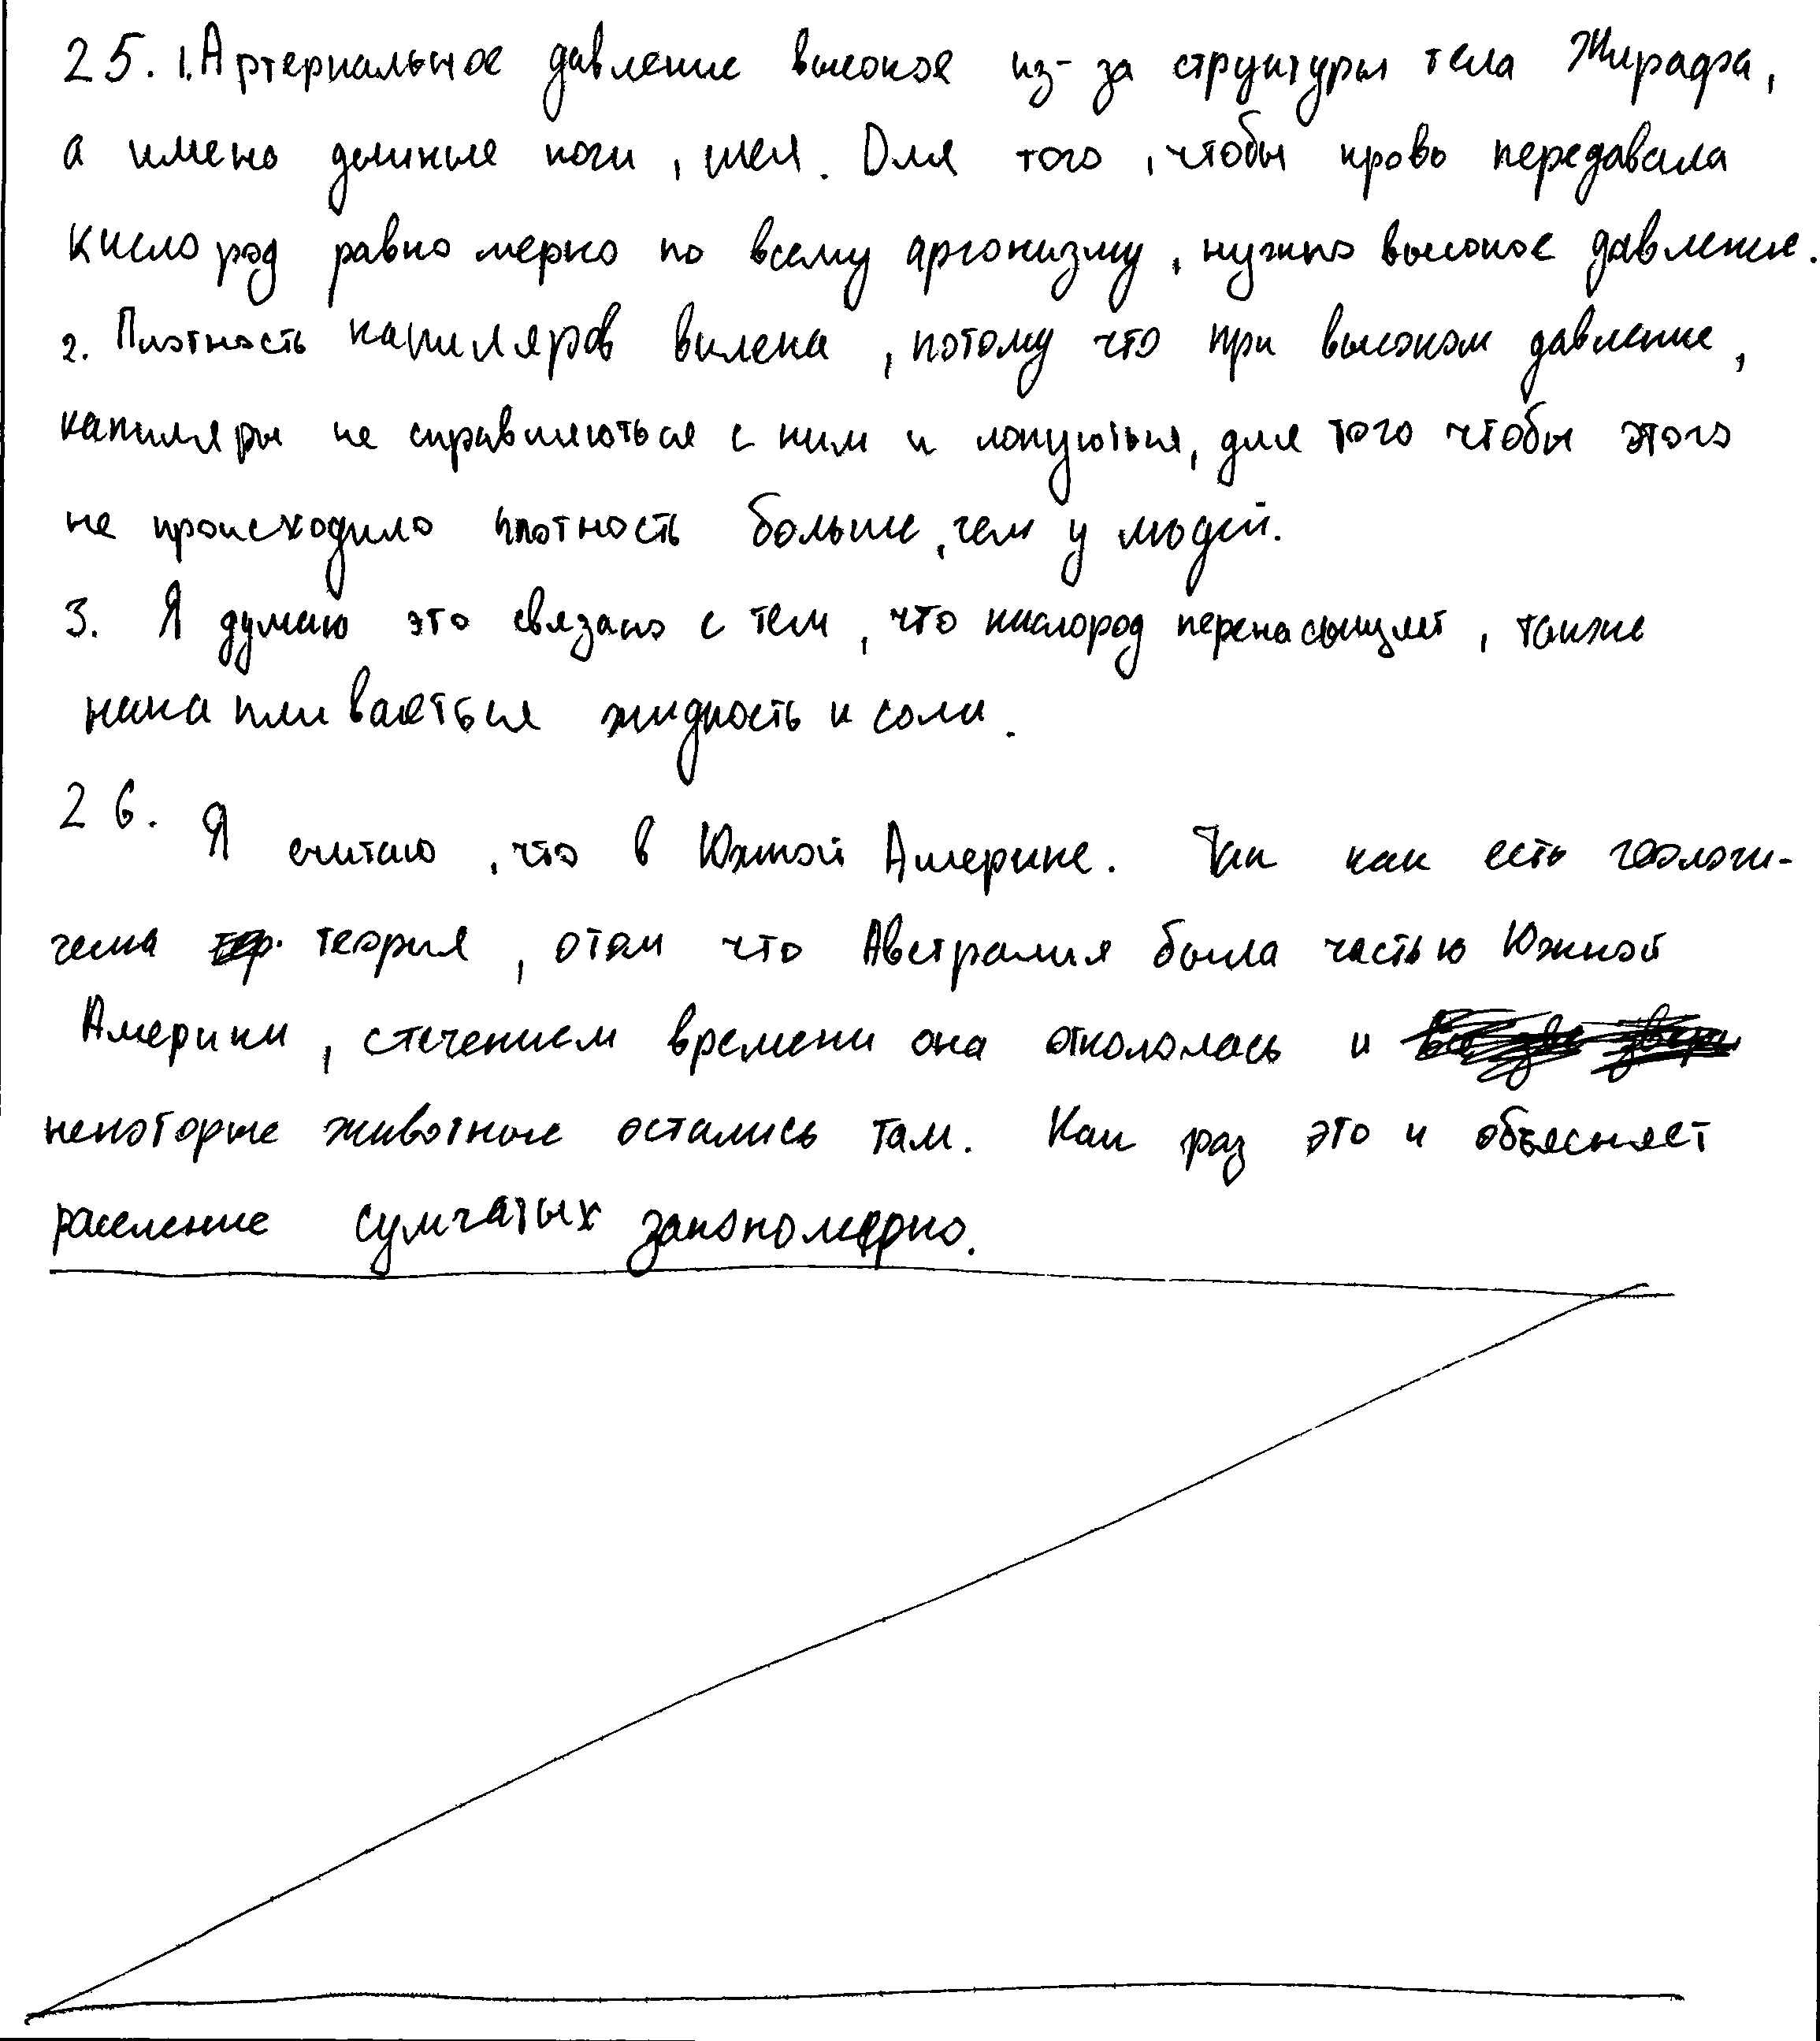 25. 1. Артериальное давление высокое из-за структуры тела Жирафа,
а имено длиные ноги, шея. Для того, чтобы кровь передавала
кислород равномерно по всему аргонизму, нужно высокое давление.
2. Плотность капиляров вилека, потому что при высоком давление,
капиляры не справляються с ним и лопуються, для того чтобы этого
не происходило плотность больше, чем у людей.
3. Я думаю это связано с тем, что кислород перенасыщяет, также
накапливаеться жидкость и соли.
26. Я считаю, что в Южной Америке. Так как есть геологи-
ческа теория, отом что Австралия была частью Южной
Америки, стечением времени она откололась и
некоторые животные остались там. Как раз это и объясняет
раселение сумчатых закономерно.